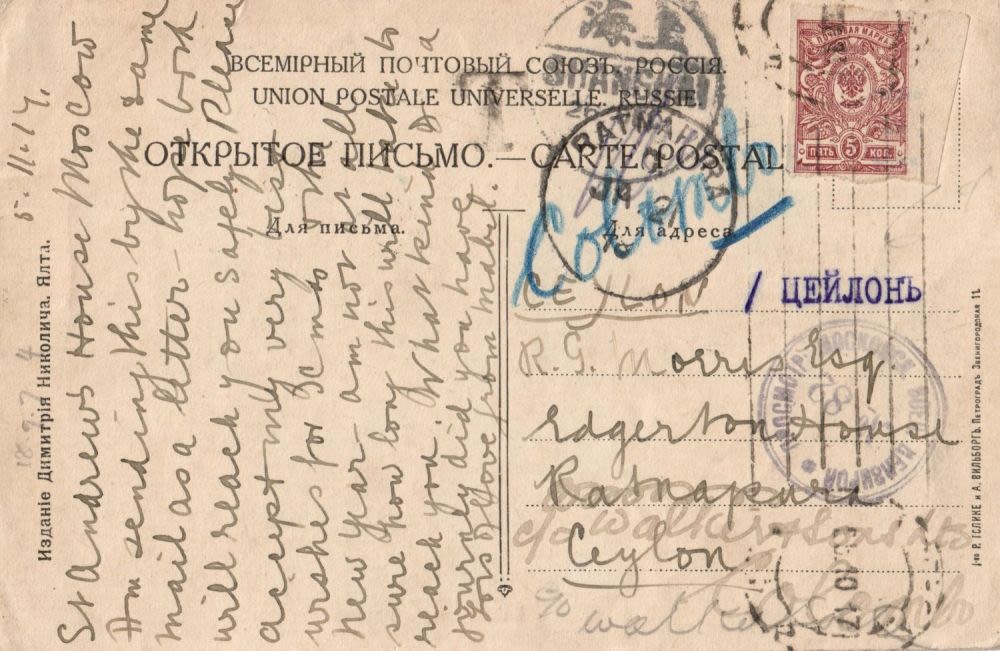 ВСЕМІРНЫЙ ПОЧТОВЫЙ СОЮЗЪ. РОССІЯ.
UNION POSTALE UNIVERSELLE. RUSSIE.
ОТКРЫТОЕ ПИСЬМО. — CARTE POSTALE
Для письма.
Для адреса.
5.11.14.
St Andrews House Moscow
Am sending this by the same
mail as a letter - hope both
will reach you safely. Please
accept my very best
wishes for Xmas & the
New Year - am not at all
sure how long this will take to
reach you. What kind of a
journey did you have
Yours love from Mabel.
上海
T
RATNAPURA
JA 2
15
Colombo
CEYLON
/ ЦЕЙЛОНЪ
R. G. Morris Esq.
Edgerton House
Ratnapura
c/o Walker & Sons Ltd
Ceylon
Colombo
c/o Walker
ПОЧТОВАЯ МАРКА
ПЯТЬ 5 КОП.
Изданіе Димитрія Николича. Ялта.
Р. ГОЛИКЕ и А. ВИЛЬБОРГЪ. ПЕТРОГРАДЪ. ЗВЕНИГОРОДСКАЯ 11.